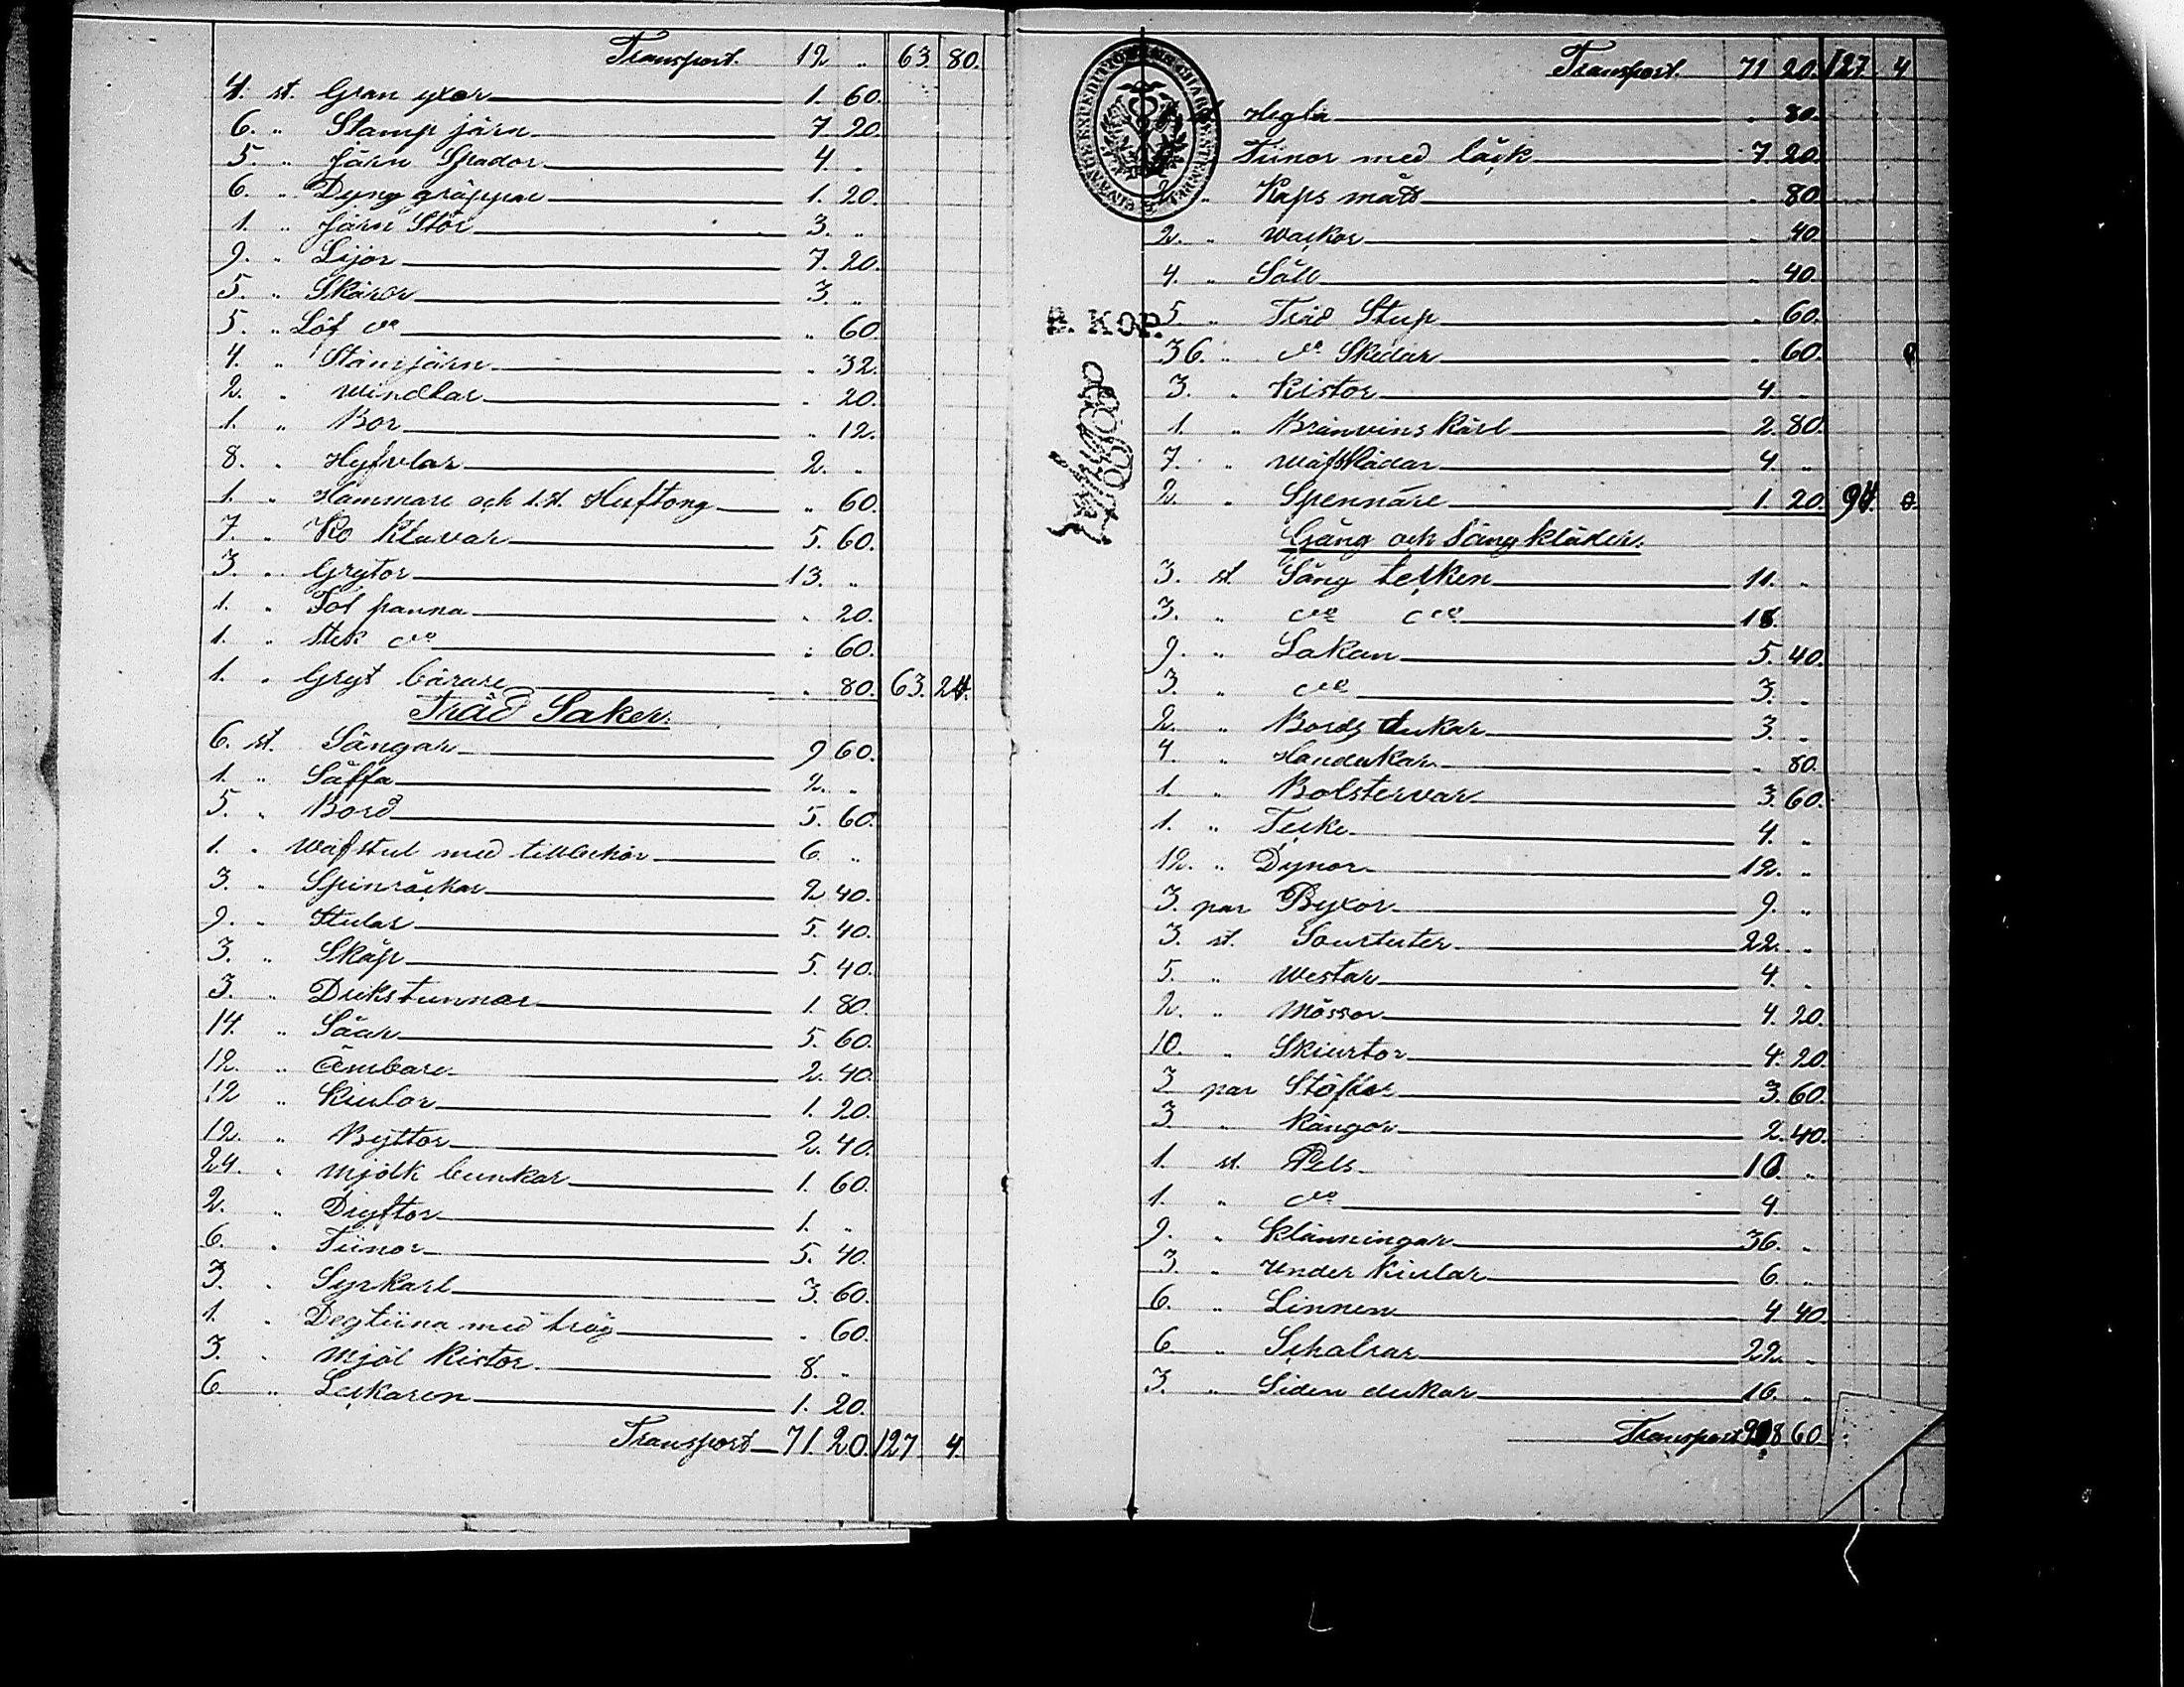 Transport. 12 " 63. 80.
4. st. Gran yxor 1. 60.
6. " Stamp järn 7. 20.
5. " Järn Spador 4. "
6. " Dyng gräppar 1. 20.
1. " Järn Stör 3. "
9. " Lijor 7. 20.
5. " Skäror 3. "
5. " Löf do " 60.
4. " Stämjärn " 32.
2. " Windlar " 20.
1. " Bor " 12.
8. " Hyfvlar 2. "
1. " Hammare och 1. st. Huftong " 60.
7. " Ko Klavar 5. 60.
3. " Grytor 13. "
1. " panna " 20.
1. " Stek do " 60.
1. " Gryt bärare " 80. 63. 24.
Träd Saker.
6. st. Sängar 9 60.
1. " Säffa 2. "
5. " Bord 5. 60.
1. " Wäfstul med tillbehör 6 "
3. " Spinråckar 2 40.
9. " Stular 5. 40.
3. " Skåp 5. 40.
3. " Drikstunnar 1. 80.
14. " Såar 5. 60.
12. " Ämbare 2. 40.
12 " Kiulor 1. 20.
12. " Byttor 2. 40.
24. " Mjölk bunkar 1. 60.
2. " Dryftor 1. "
6. " Tiinor 5. 40.
3. " Syrkarl 3. 60.
1. " Degtiina med tråg " 60.
3. " Mjöl Kistor 8. "
6 " Leckaren 1. 20.
Transport 71. 20. 127 4.
Transport. 71 20. 127. 4
Hegla " 80.
" Tiinor med läck 7. 20.
2. " Kaps mått " 80.
2. " Wackor " 40.
4. " Såll " 40.
B. KOP.
5. " Träd Stup " 60.
36. " do Skedar " 60.
3. " Kistor 4. "
1. " Bränvins Kärl 2. 80.
7. " Wäfskädar 4 "
2. " Spennare 1. 20. 94. "
Gång och Sängkläder.
3. st. Säng tecken 11. "
3. " do do 18.
9. " Lakan 5. 40.
3. " do 3. "
2. " Bords dukar 3. "
4. " Handukar " 80.
1. " Bolstervar 3. 60.
1. " Tecke 4. "
12. " Dynor 12. "
3. par Byxor 9. "
3. st. Sourtuter 22. "
5. " Westar 4. "
2. " Mössor 4. 20.
10. " Skiurtor 4. 20.
3 par Stöflor 3. 60.
3 " Kängor 2. 40.
1. st. Pels 10. "
1. " do 4.
9. " Klänningar 36. "
3. " Under Kiulac 6. "
6. " Linnen 4 40.
6 " Schalrar 22. "
3. " Siden dukar 16. "
Transport 60.